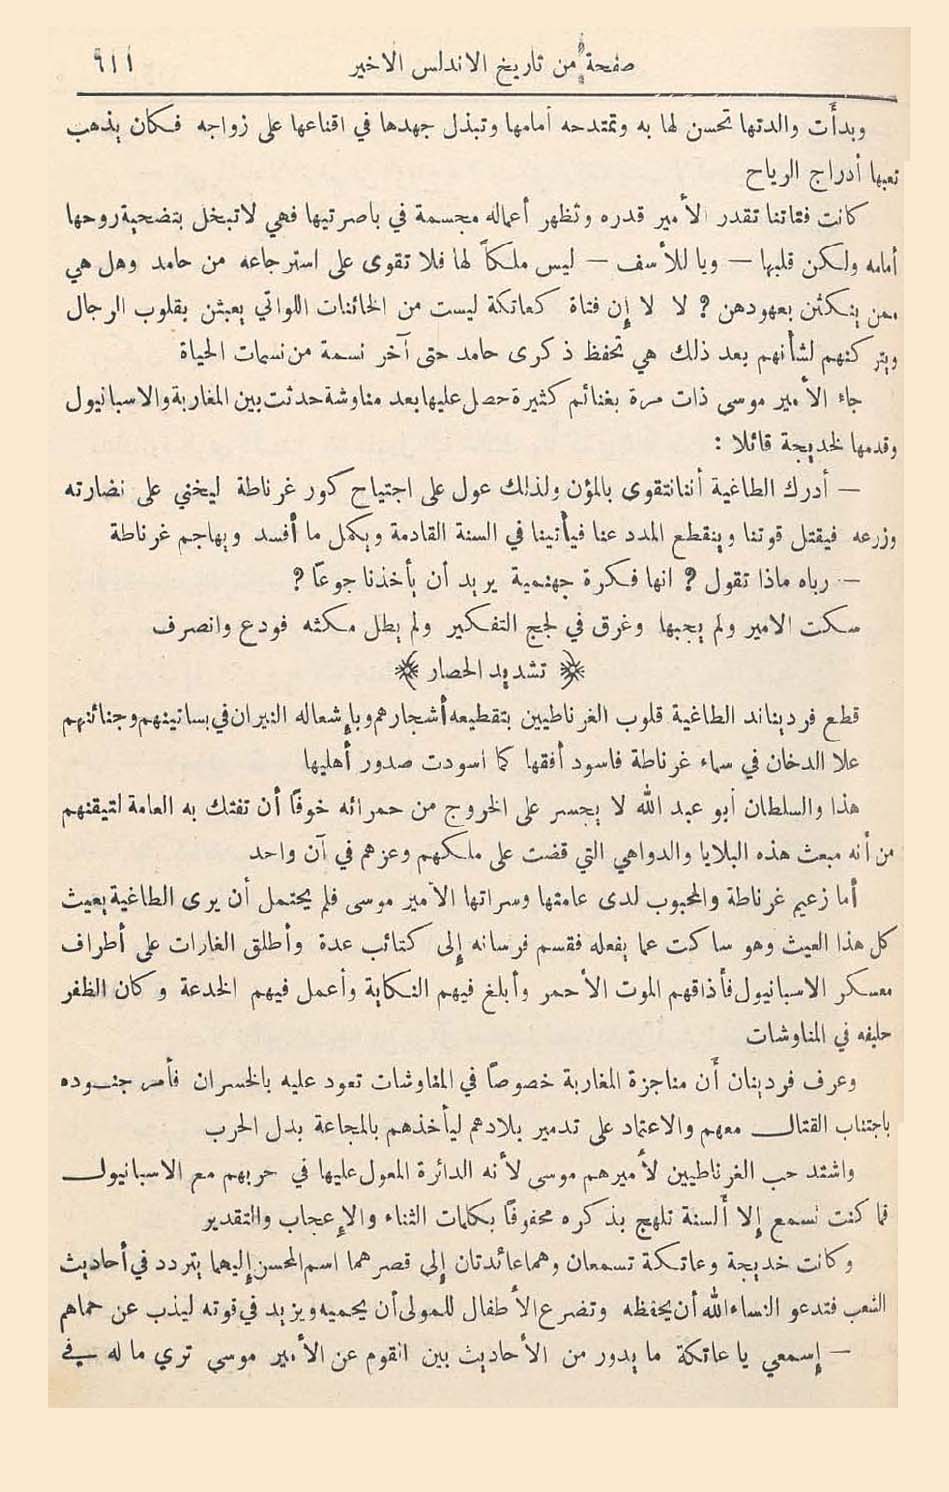 صفحة من تاريخ الاندلس الاخير ٩١١
وبدأت والدتها تحسن لها به وتمتدحه أمامها وتبذل جهدها في اقناعها على زواجه فكان يذهب
تعبها أدراج الرياح
كانت فتاتنا تقدر الأمير قدره وتظهر أعماله مجسمة في باصرتيها فهي لا تبخل بتضحية روحها
أمامه ولكن قلبها — ويا للأسف — ليس ملكاً لها فلا تقوى على استرجاعه من حامد وهل هي
ممن ينكثن بعهودهن ؟ لا لا إن فتاة كعاتكة ليست من الخائنات اللواتي يعبثن بقلوب الرجال
ويتركنهم لشأنهم بعد ذلك هي تحفظ ذكرى حامد حتى آخر نسمة من نسمات الحياة
جاء الأمير موسى ذات مرة بغنائم كثيرة حصل عليها بعد مناوشة حدثت بين المغاربة والاسبانيول
وقدمها لخديجة قائلا :
— أدرك الطاغية أننا نتقوى بالمؤن ولذلك عول على اجتياح كور غرناطة ليخني على نضارته
وزرعه فيقتل قوتنا وينقطع المدد عنا فيأتينا في السنة القادمة ويكمل ما أفسد ويهاجم غرناطة
— رباه ماذا تقول ؟ انها فكرة جهنمية يريد أن يأخذنا جوعاً ؟
سكت الامير ولم يجبها وغرق في لجج التفكير ولم يطل مكثه فودع وانصرف
﴿ تشديد الحصار ﴾
قطع فرديناند الطاغية قلوب الغرناطيين بتقطيعه أشجارهم وبإشعاله النيران في بساتينهم وجنائنهم
علا الدخان في سماء غرناطة فاسود أفقها كما اسودت صدور أهليها
هذا والسلطان أبو عبد الله لا يجسر على الخروج من حمرائه خوفاً أن تفتك به العامة لتيقنهم
من أنه مبعث هذه البلايا والدواهي التي قضت على ملكهم وعزهم في آن واحد
أما زعيم غرناطة والمحبوب لدى عامتها وسراتها الأمير موسى فلم يحتمل أن يرى الطاغية يعيث
كل هذا العيث وهو ساكت عما يفعله فقسم فرسانه إلى كتائب عدة وأطلق الغارات على أطراف
معسكر الاسبانيول فأذاقهم الموت الأحمر وأبلغ فيهم النكاية وأعمل فيهم الخدعة وكان الظفر
حليفه في المناوشات
وعرف فردينان أن مناجزة المغاربة خصوصاً في المناوشات تعود عليه بالخسران فأمر جنوده
باجتناب القتال معهم والاعتماد على تدمير بلادهم ليأخذهم بالمجاعة بدل الحرب
واشتد حب الغرناطيين لأميرهم موسى لأنه الدائرة المعول عليها في حربهم مع الاسبانيول
فما كنت تسمع إلا ألسنة تلهج بذكره محفوفاً بكلمات الثناء والإعجاب والتقدير
وكانت خديجة وعاتكة تسمعان وهما عائدتان إلى قصرهما اسم المحسن إليهما يتردد في أحاديث
الشعب فتدعو النساء الله أن يحفظه وتضرع الأطفال للمولى أن يحميه ويزيد في قوته ليذب عن حماهم
— إسمعي يا عاتكة ما يدور من الأحاديث بين القوم عن الأمير موسى تري ما له في